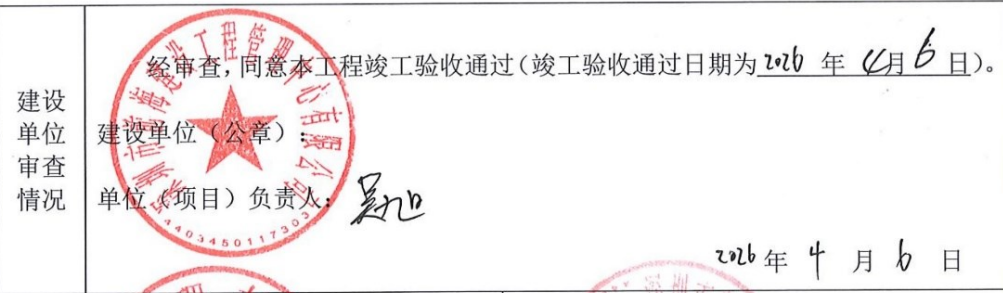 建设
单位
审查
情况
经审查，同意本工程竣工验收通过（竣工验收通过日期为2026 年 4月6 日）。
建设单位（公章）：
单位（项目）负责人：吴旭
2026年 4 月 6 日
深圳市前海建设工程管理中心有限公司
4403450117303